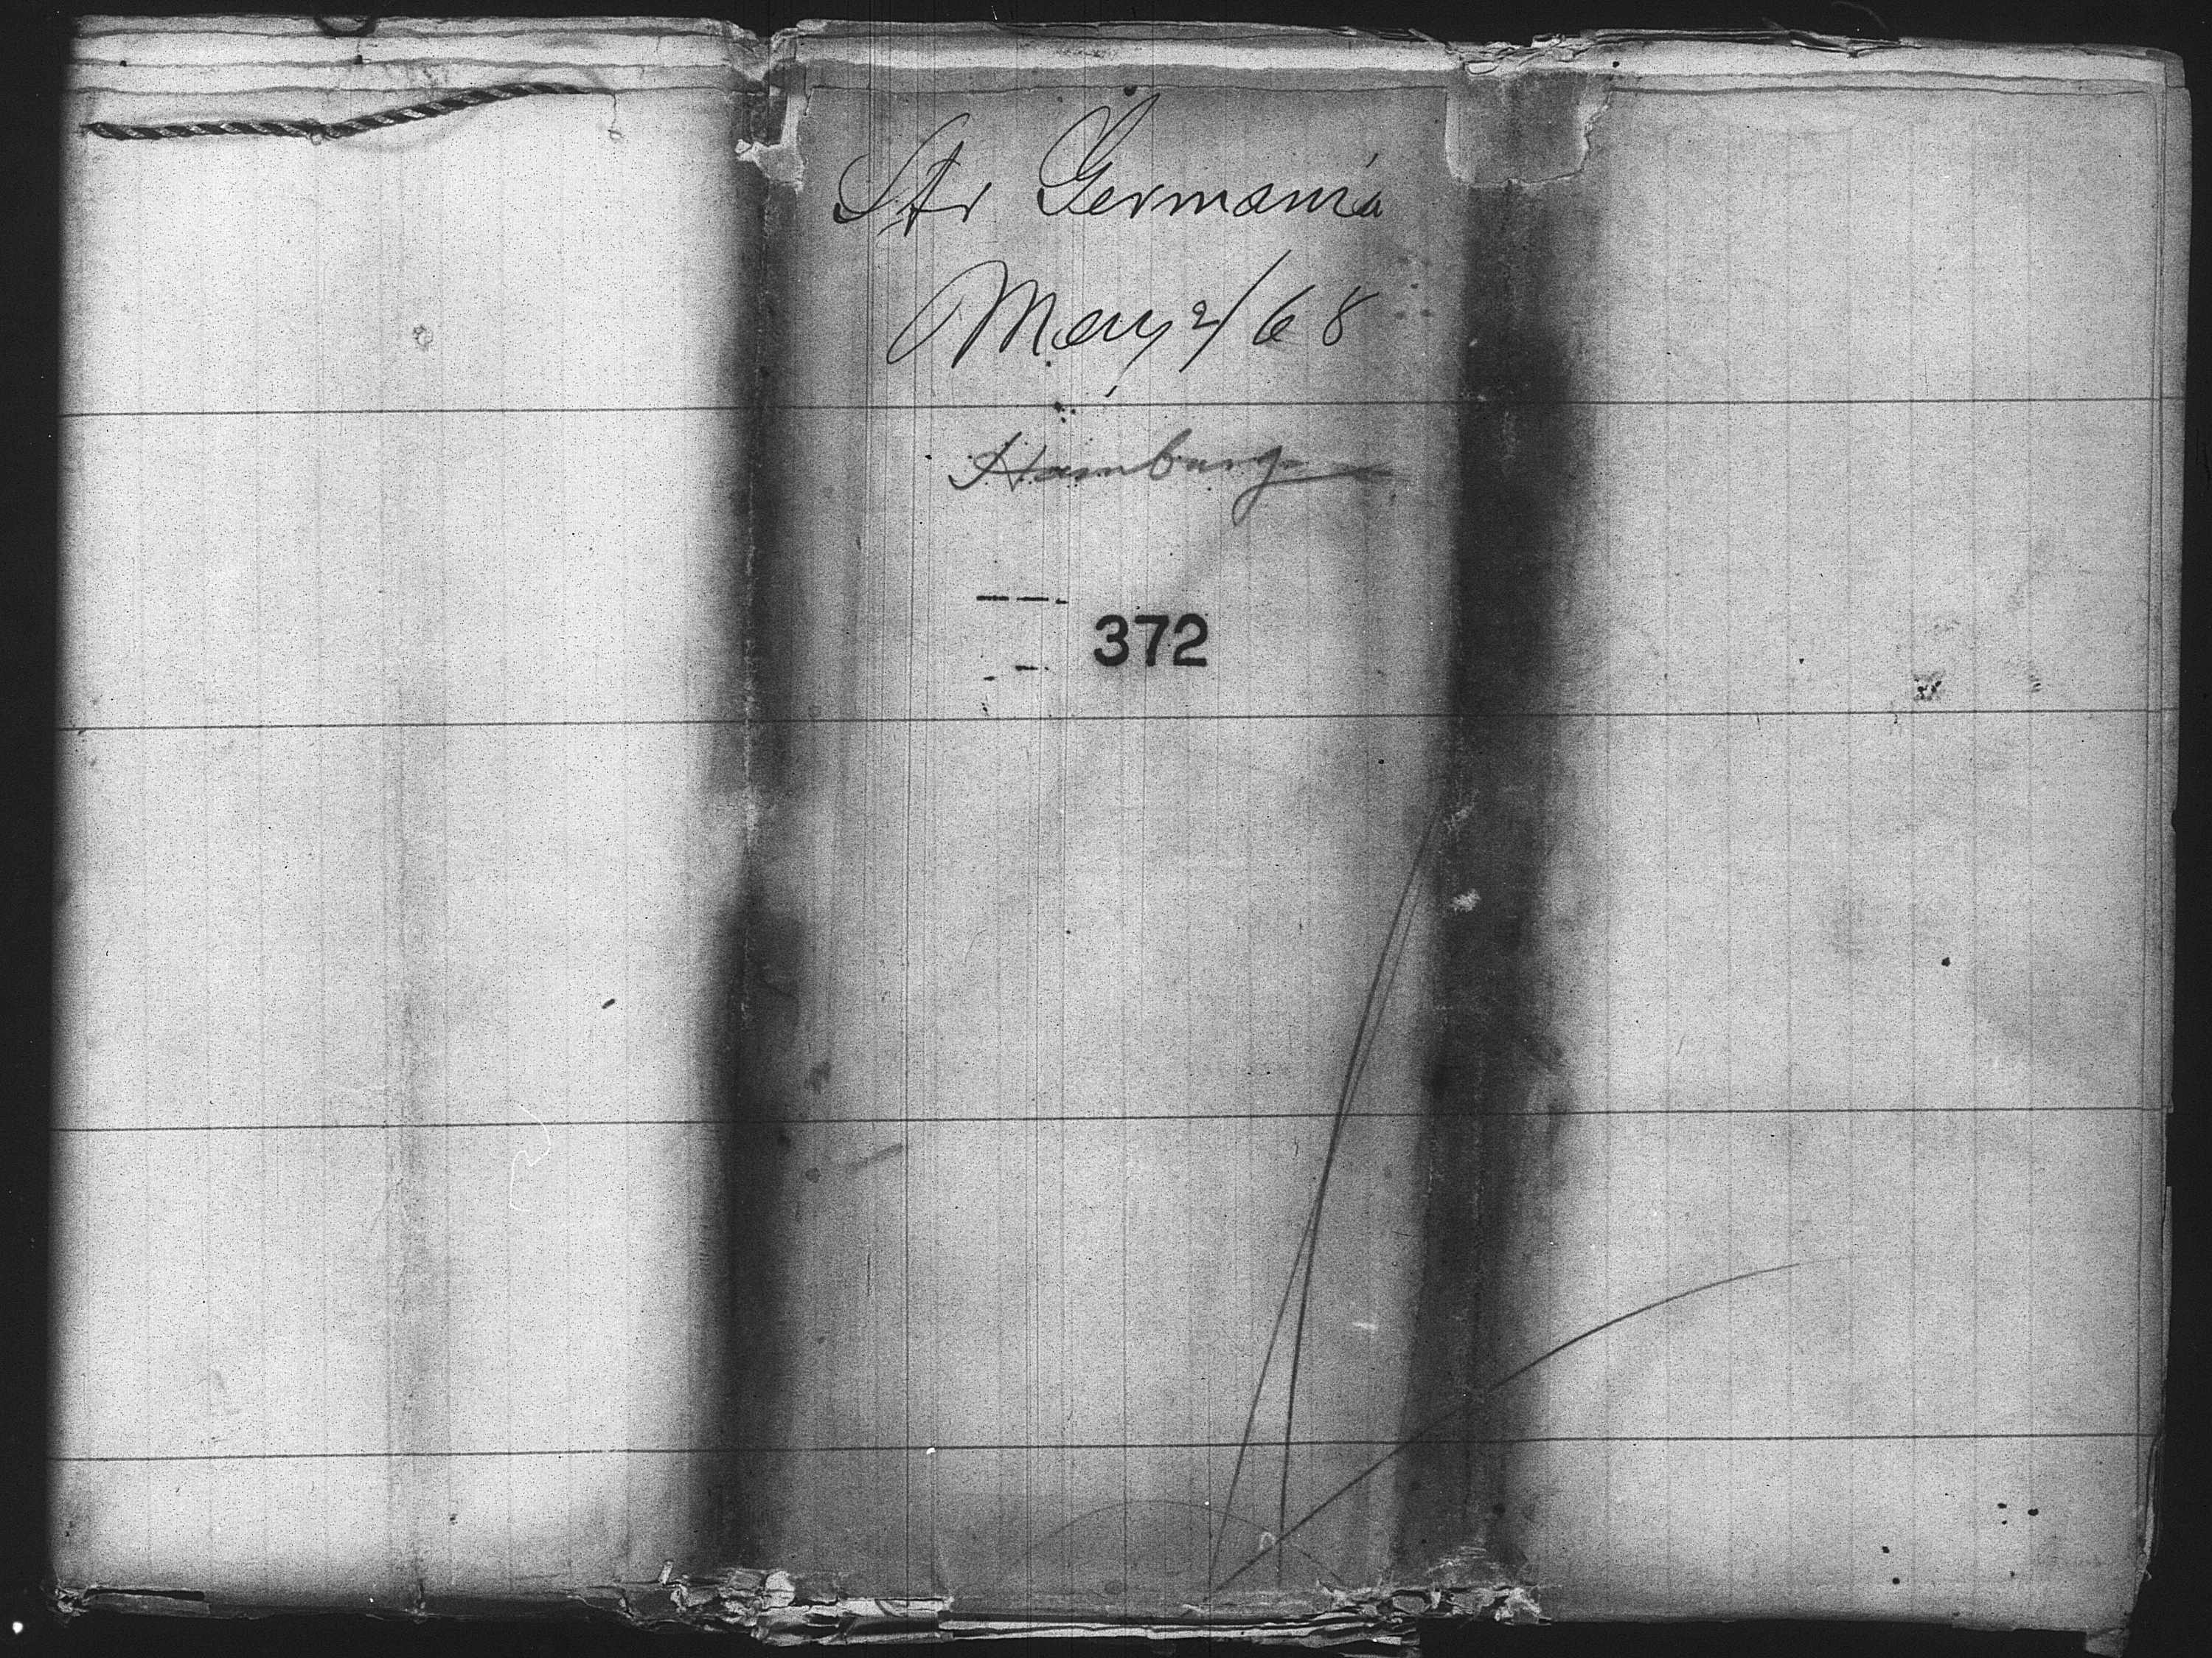 Str Germania
May 2/68
Hamburg
372